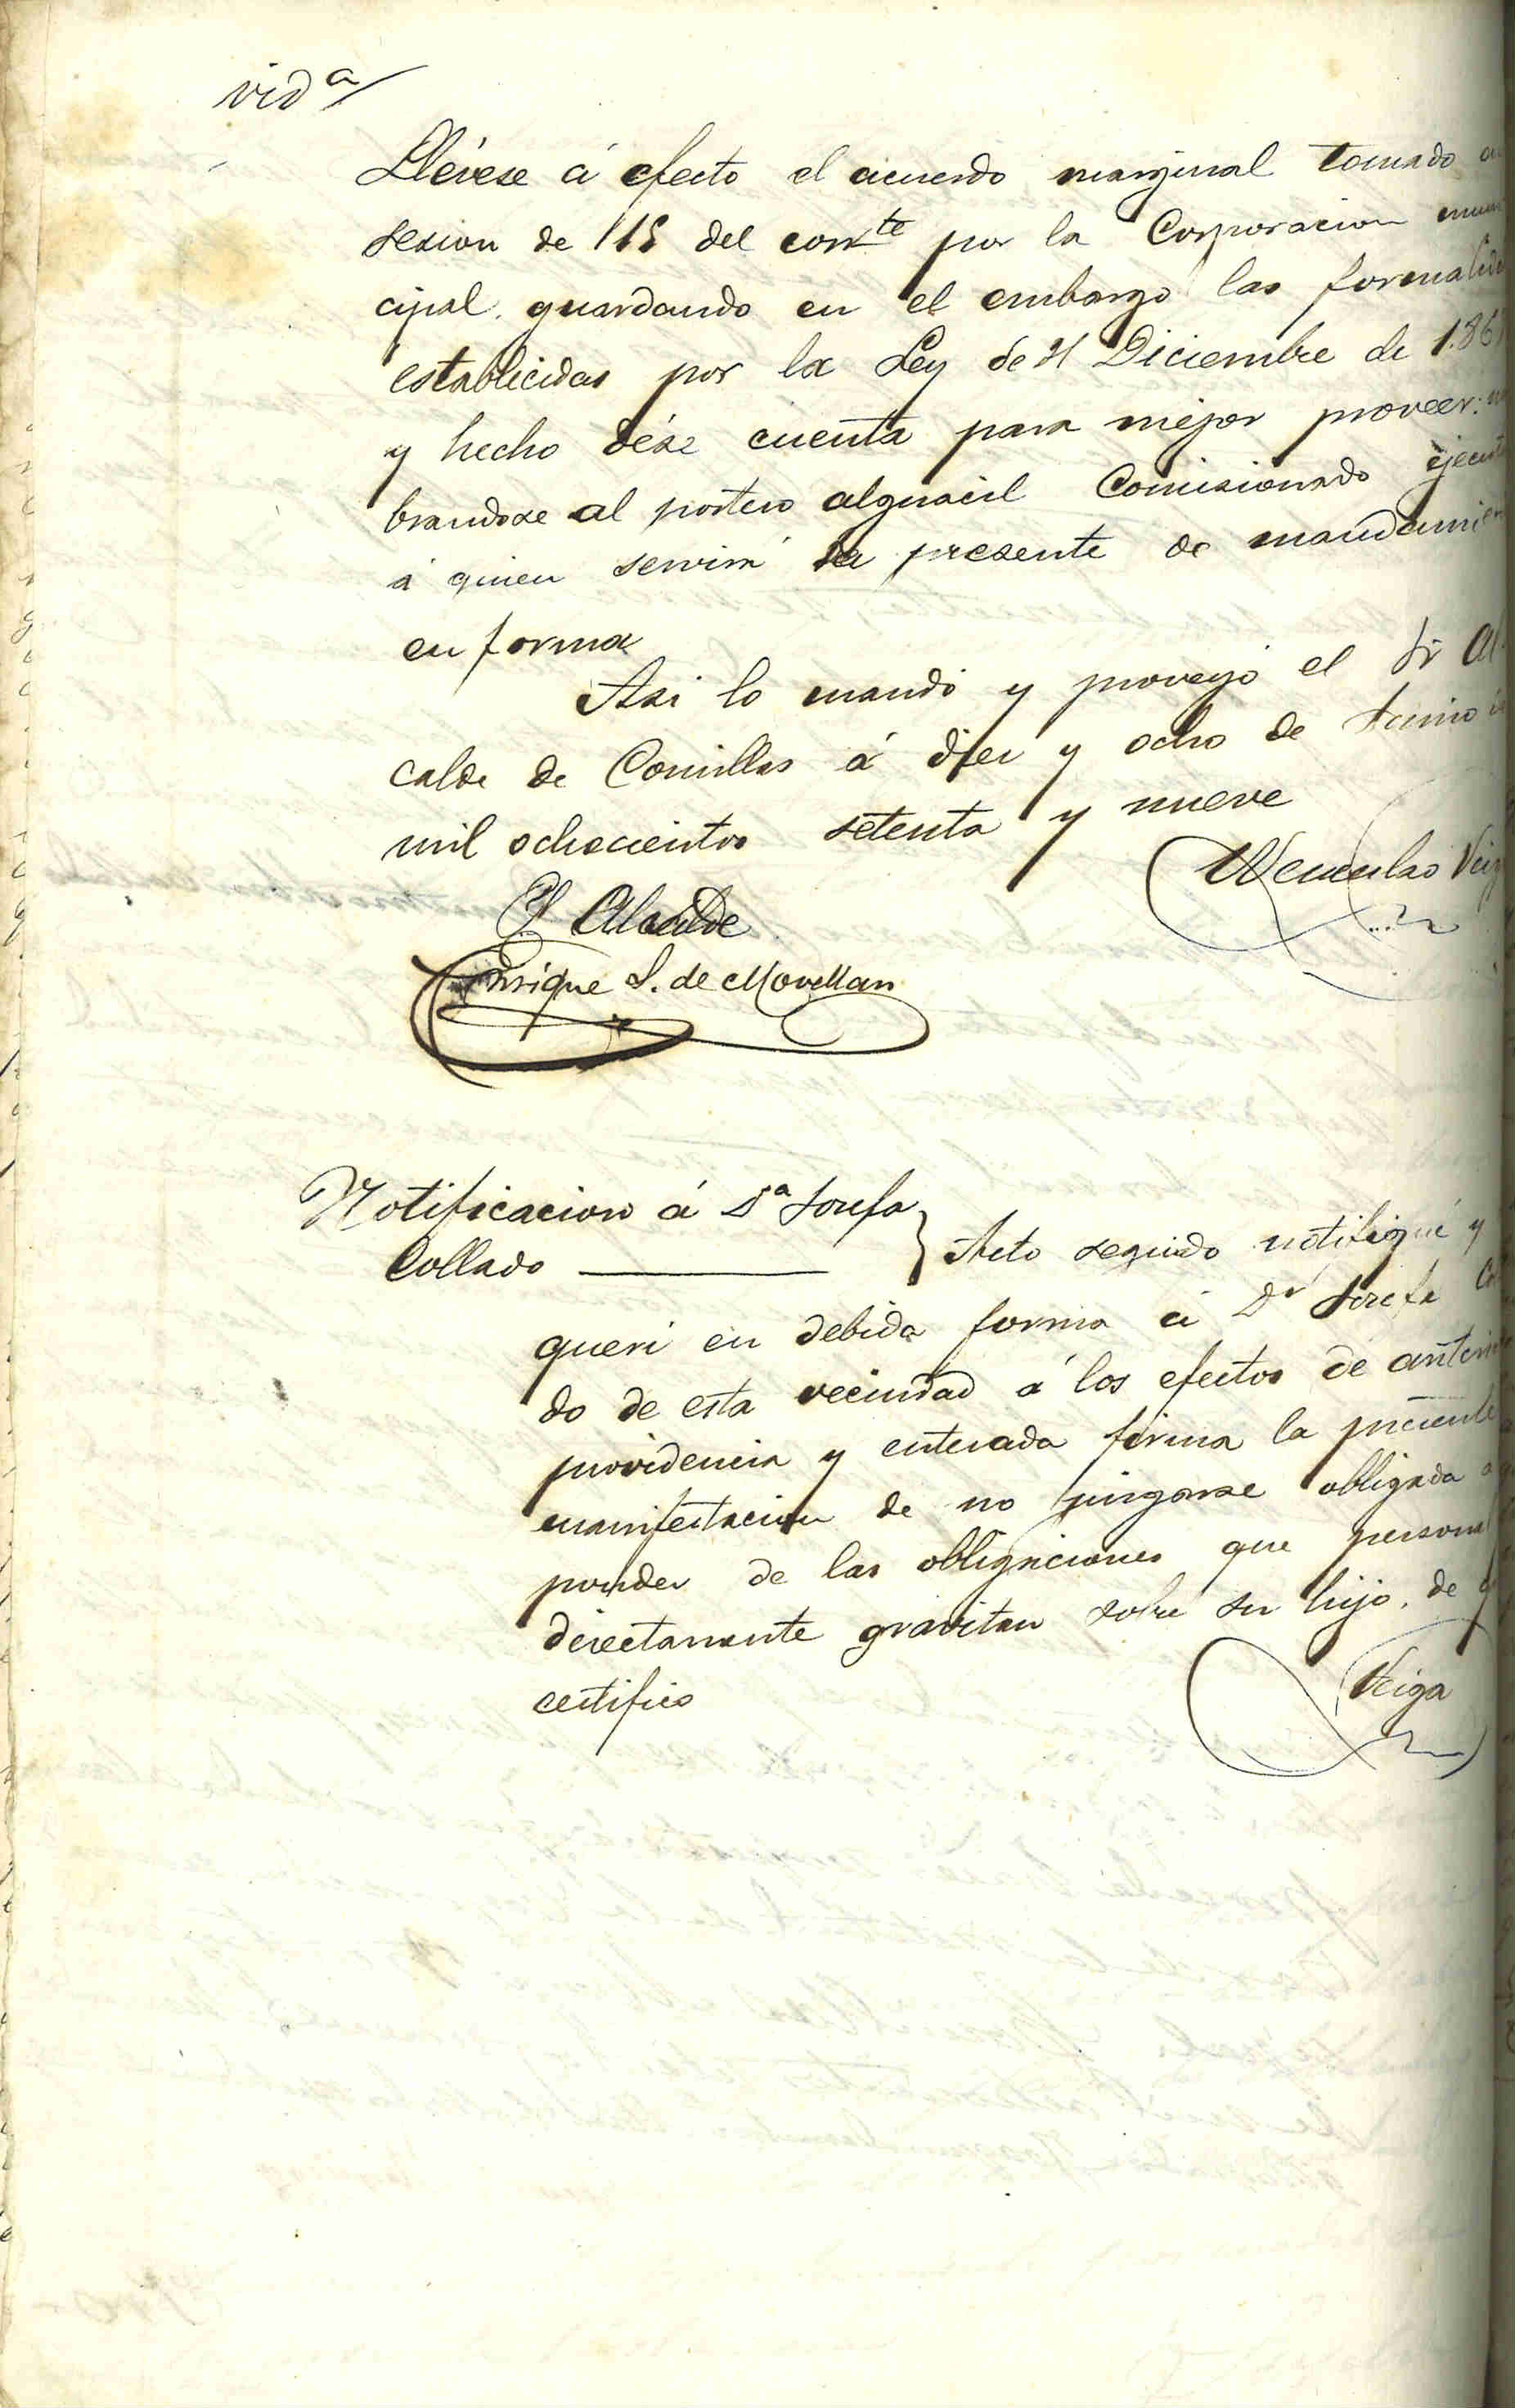 vid.ª
Llévese á efecto el acuerdo marginal tomado
sesion de 15 del corrte por la Corporacion muni
cipal, guardando en el embargo las formalida
establecidas por la Ley de Diciembre de 186
y hecho dése cuenta para mejor proveer: nom
brandose al portero alguacil Comisionado ejecuto
á quien servirá la presente de mandamien
en forma
Asi lo mandó y proveyó el Sr Al
calde de Comillas á diez y ocho de Junio
mil ochocientos setenta y nueve
Wenceslao Veiga
El Alcalde
Enrique S. de Movellan
Notificacion á Dª Josefa
Collado
Acto seguido notifiqué y
querí en debida forma á Dª Josefa Co
do de esta vecindad á los efectos de anterior
providencia y enterada firma la presente
manifestacion de no juzgarse obligada
ponder de las obligaciones que personal
directamente gravitan sobre su hijo, de q
certifico
Veiga